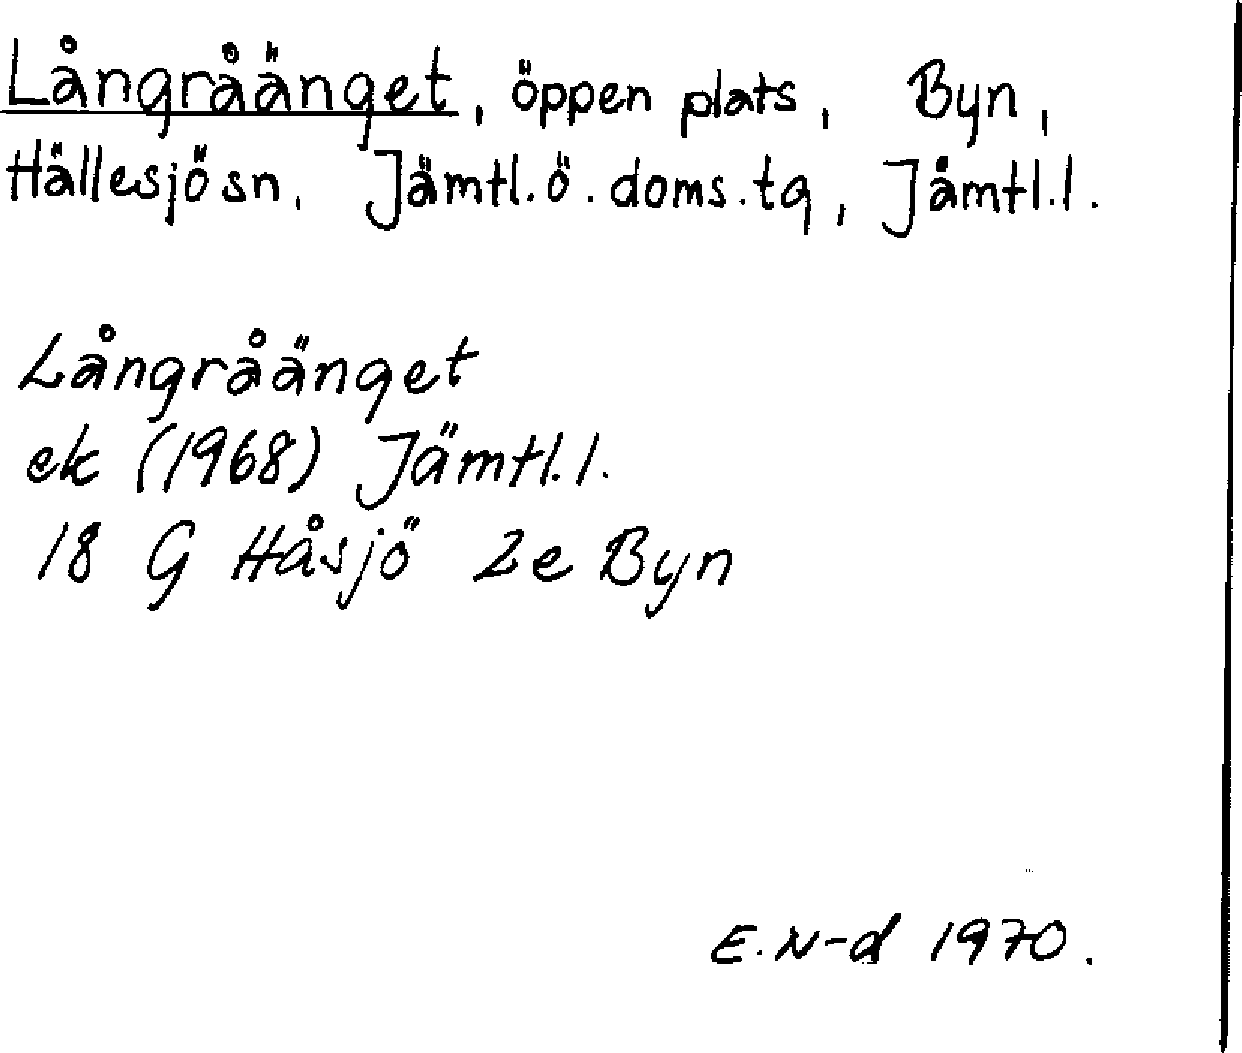 Långråänget, öppen plats, Byn,
Hällesjö sn, Jämtl. ö. doms. tg, Jämtl. l.
Långråänget
ek (1968) Jämtl. l.
18 G Håsjö 2e Byn
E. N-d 1970.